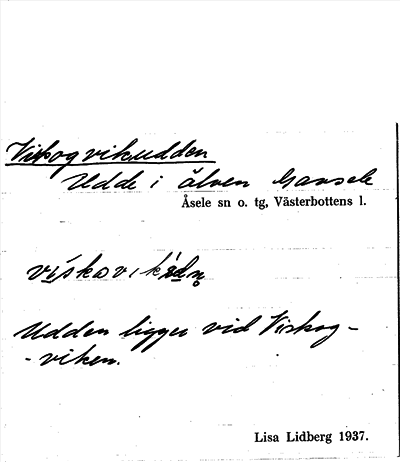 Viskogvikudden
Udde i älven Gavsele
Åsele sn o. tg, Västerbottens l.
Udden ligger vid Viskog-
-viken.
Lisa Lidberg 1937.